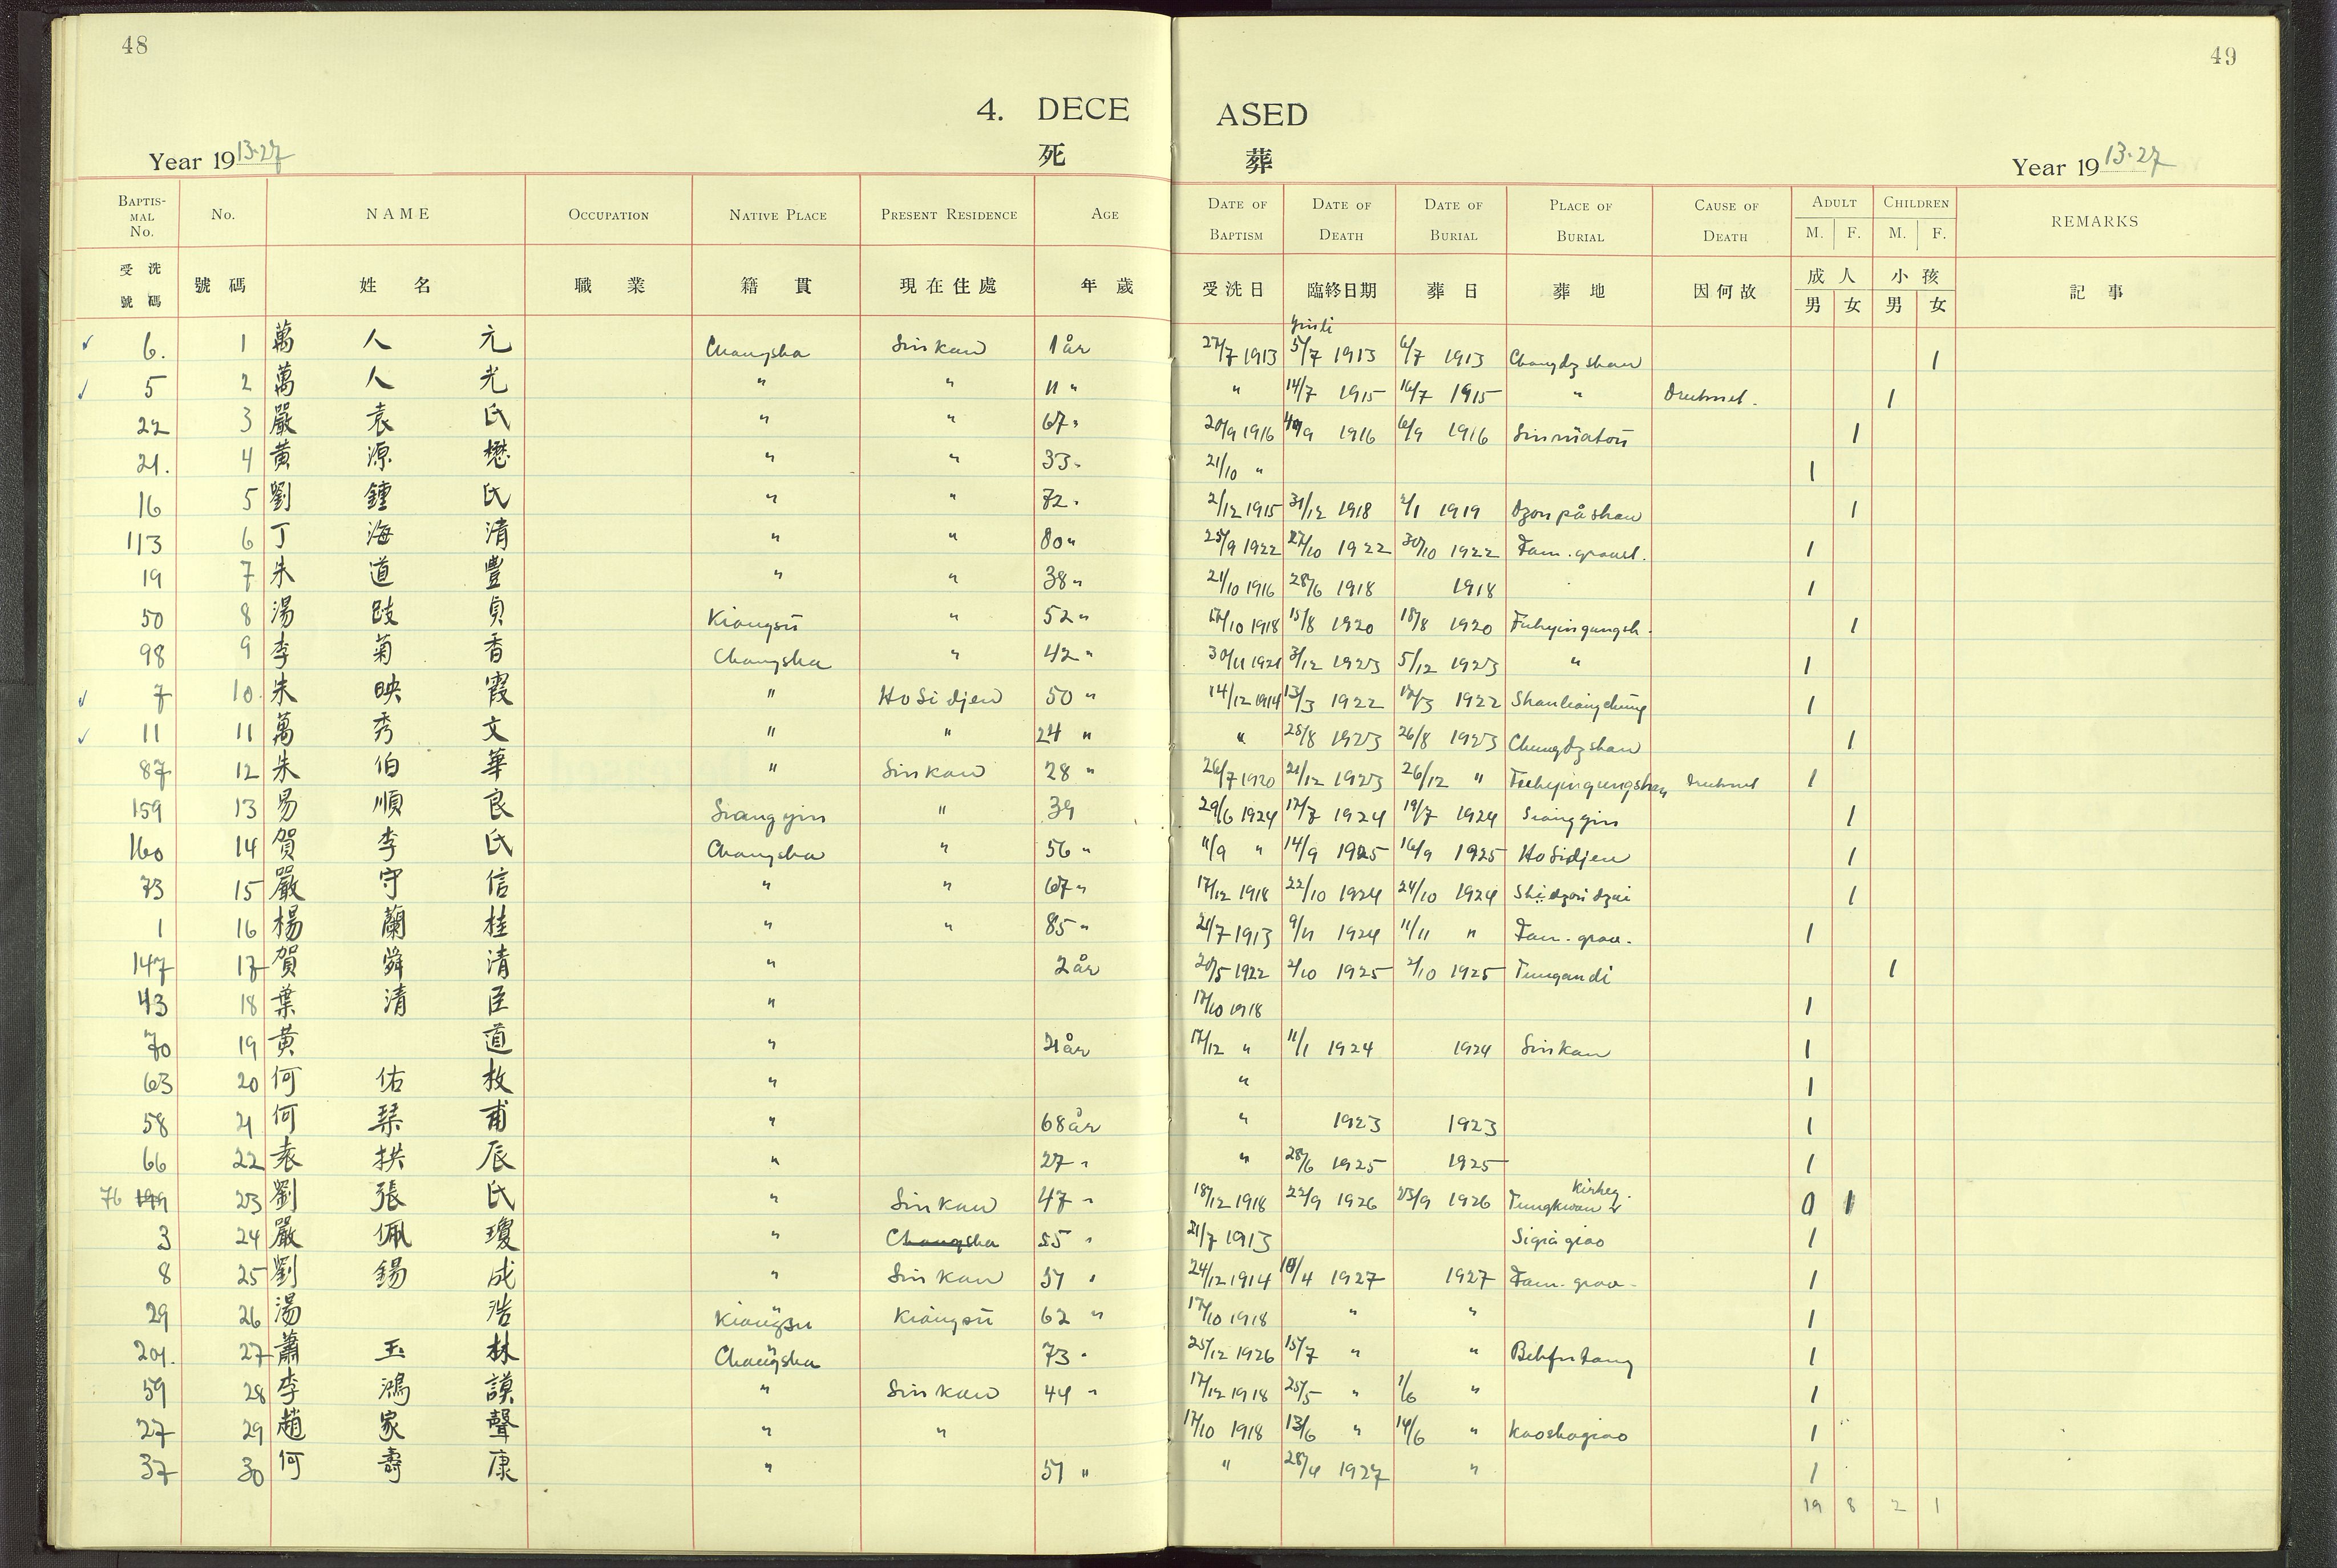 48
49
4. DECEASED
死葬
Year 1913-27
Year 1913-27
BAPTISMAL No. No. NAME OCCUPATION NATIVE PLACE PRESENT RESIDENCE AGE DATE OF BAPTISM DATE OF DEATH DATE OF BURIAL PLACE OF BURIAL CAUSE OF DEATH ADULT M. F. CHILDREN M. F. REMARKS
受洗號碼 號碼 姓名 職業 籍貫 現在住處 年歲 受洗日 臨終日期 葬日 葬地 因何故 成人 男 女 小孩 男 女 記事
6. 1 萬人元 Changsha Sinkau 1 år 27/7 1913 5/7 1913 6/7 1913 1
5 2 萬人光 " " 11 " " 14/7 1915 16/7 1915 " Druknet. 1
22 3 嚴袁氏 " " 67 " 20/9 1916 1916 6/9 1916 1
21. 4 黃源懋 " " 33 " 21/10 " 1
16 5 劉鍾氏 " " 72 " 2/12 1915 31/12 1918 2/1 1919 Dzonpåshan 1
113 6 丁海清 " " 80 " 25/9 1922 27/10 1922 30/10 1922 Fam. gravst. 1
19 7 朱道豐 " " 38 " 21/10 1916 28/6 1918 1918 1
50 8 湯貞 Kiangsü " 52 " 17/10 1918 15/8 1920 18/8 1920 1
98 9 李菊香 Changsha " 42 " 30/11 1921 3/12 1923 5/12 1923 " 1
7 10. 朱映霞 " Hosidjen 50 " 14/12 1914 13/3 1922 17/3 1922 1
11 11 萬秀文 " " 24 " " 25/8 1923 26/8 1923 1
87 12 朱伯華 " Sinkau 28 " 26/7 1920 21/12 1923 26/12 " Druknet 1
159 13 易順良 Siangyin " 39 29/6 1924 17/7 1924 19/7 1924 Siangyin 1
160 14 賀李氏 Changsha " 56 " 11/9 " 14/9 1925 16/9 1925 Hosidjen 1
73 15 嚴守信 " " 67 " 17/12 1918 22/10 1924 24/10 1924 1
1 16 楊蘭桂 " " 85 " 21/7 1913 9/11 1924 11/11 " Fam. grav. 1
147 17 賀舜清 " 2 år 20/5 1922 2/10 1925 2/10 1925 Tungandi 1
43 18 葉清臣 " 17/10 1918 1
70 19 黃道 " 21 år 17/12 " 11/1 1924 1924 Sinkau 1
63 20 何佑 " " 1
58 21 何琹甫 " 68 år " 1923 1923 1
66 22 袁拱辰 " 27 " " 28/6 1925 1925 1
76 23 劉張氏 " Sinkau 47 " 18/12 1918 22/9 1926 23/9 1926 1
3 24 嚴佩瓊 " Changsha 55 " 21/7 1913 1
8 25 劉錫成 " Sinkau 51 " 24/12 1914 1927 1927 Fam. grav. 1
29 26 湯浩 Kiangsu Kiangsü 62 " 17/10 1918 " " 1
201. 27 蕭玉林 Changsha 73 " 25/12 1926 15/7 " " 1
59 28 李鴻謨 " Sinkau 44 " 17/12 1918 25/5 " 1/6 " 1
27 29 趙家聲 " " 17/10 1918 13/6 " 14/6 " Kaoshagiao 1
37 30 何壽康 " 51 " " 28/4 1927 " 1
19 8 2 1